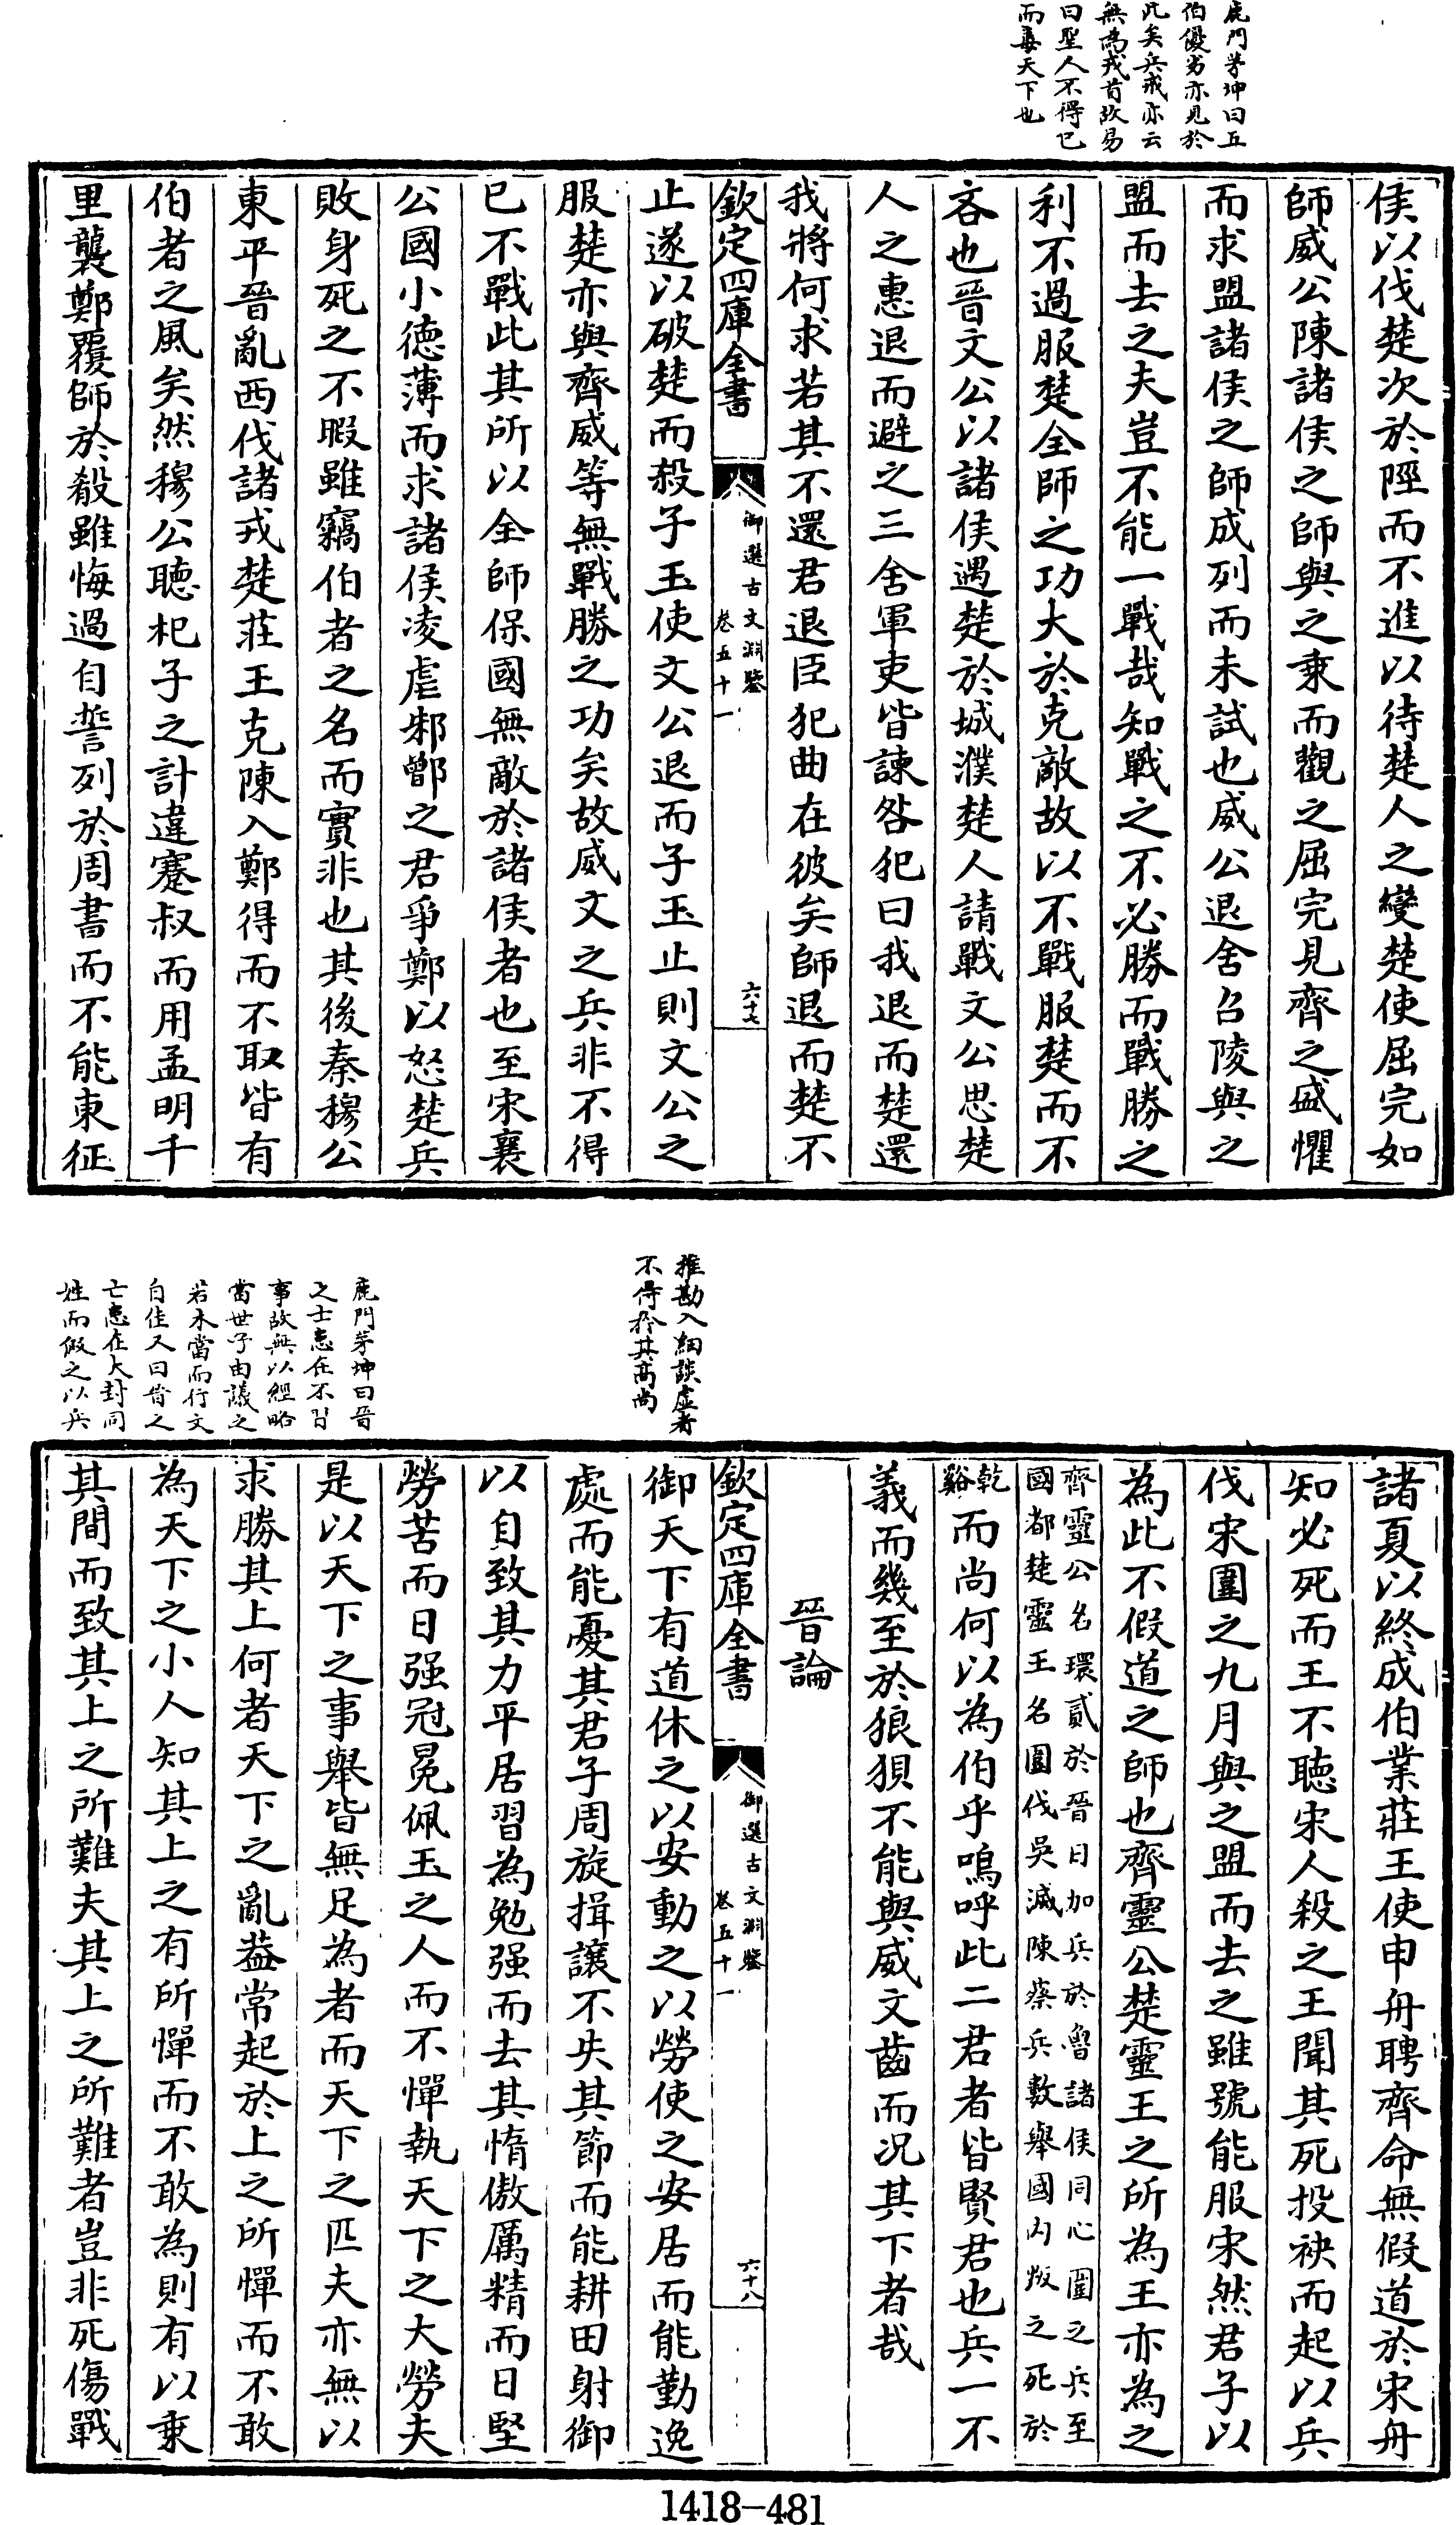 鹿門茅坤曰五
伯優劣亦見於
此矣兵戒亦云
無為戎首故易
曰聖人不得已
而毒天下也
侯以伐楚次於陘而不進以待楚人之變楚使屈完如
師威公陳諸侯之師與之乘而觀之屈完見齊之盛懼
而求盟諸侯之師成列而未試也威公退舍召陵與之
盟而去之夫豈不能一戰哉知戰之不必勝而戰勝之
利不過服楚全師之功大於克敵故以不戰服楚而不
吝也晉文公以諸侯遇楚於城濮楚人請戰文公思楚
人之惠退而避之三舍軍吏皆諫咎犯曰我退而楚還
我將何求若其不還君退臣犯曲在彼矣師退而楚不
欽定四庫全書
御選古文淵鑒
卷五十一
六十七
止遂以破楚而殺子玉使文公退而子玉止則文公之
服楚亦與齊威等無戰勝之功矣故威文之兵非不得
已不戰此其所以全師保國無敵於諸侯者也至宋襄
公國小德薄而求諸侯凌虐邾鄫之君爭鄭以怒楚兵
敗身死之不暇雖竊伯者之名而實非也其後秦穆公
東平晉亂西伐諸戎楚莊王克陳入鄭得而不取皆有
伯者之風矣然穆公聽杞子之計違蹇叔而用孟明千
里襲鄭覆師於殽雖悔過自誓列於周書而不能東征
推勘入細談虛者
不得矜其高尚
鹿門茅坤曰晉
之士患在不習
事故無以經略
當世子由議之
若未當而行文
自佳又曰晉之
亡患在大封同
姓而假之以兵
諸夏以終成伯業莊王使申舟聘齊命無假道於宋舟
知必死而王不聽宋人殺之王聞其死投袂而起以兵
伐宋圍之九月與之盟而去之雖號能服宋然君子以
為此不假道之師也齊靈公楚靈王之所為王亦為之
齊靈公名環貳於晉日加兵於魯諸侯同心圍之兵至
國都楚靈王名圍伐吳滅陳蔡兵數舉國內叛之死於
乾
谿
而尚何以為伯乎嗚呼此二君者皆賢君也兵一不
義而幾至於狼狽不能與威文齒而况其下者哉
晉論
欽定四庫全書
御選古文淵鑒
卷五十一
六十八
御天下有道休之以安動之以勞使之安居而能勤逸
處而能憂其君子周旋揖讓不失其節而能耕田射御
以自致其力平居習為勉强而去其惰傲厲精而日堅
勞苦而日强冠冕佩玉之人而不憚執天下之大勞夫
是以天下之事舉皆無足為者而天下之匹夫亦無以
求勝其上何者天下之亂葢常起於上之所憚而不敢
為天下之小人知其上之有所憚而不敢為則有以乘
其間而致其上之所難夫其上之所難者豈非死傷戰
1418-481